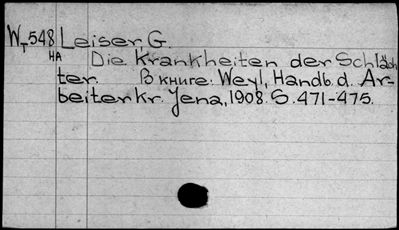 WT548 Leiser G.
HA Die Krankheiten der Schläch
ter. В книге: Weyl, Handb. d. Ar-
beiterkr. Jena, 1908. S. 471-475.